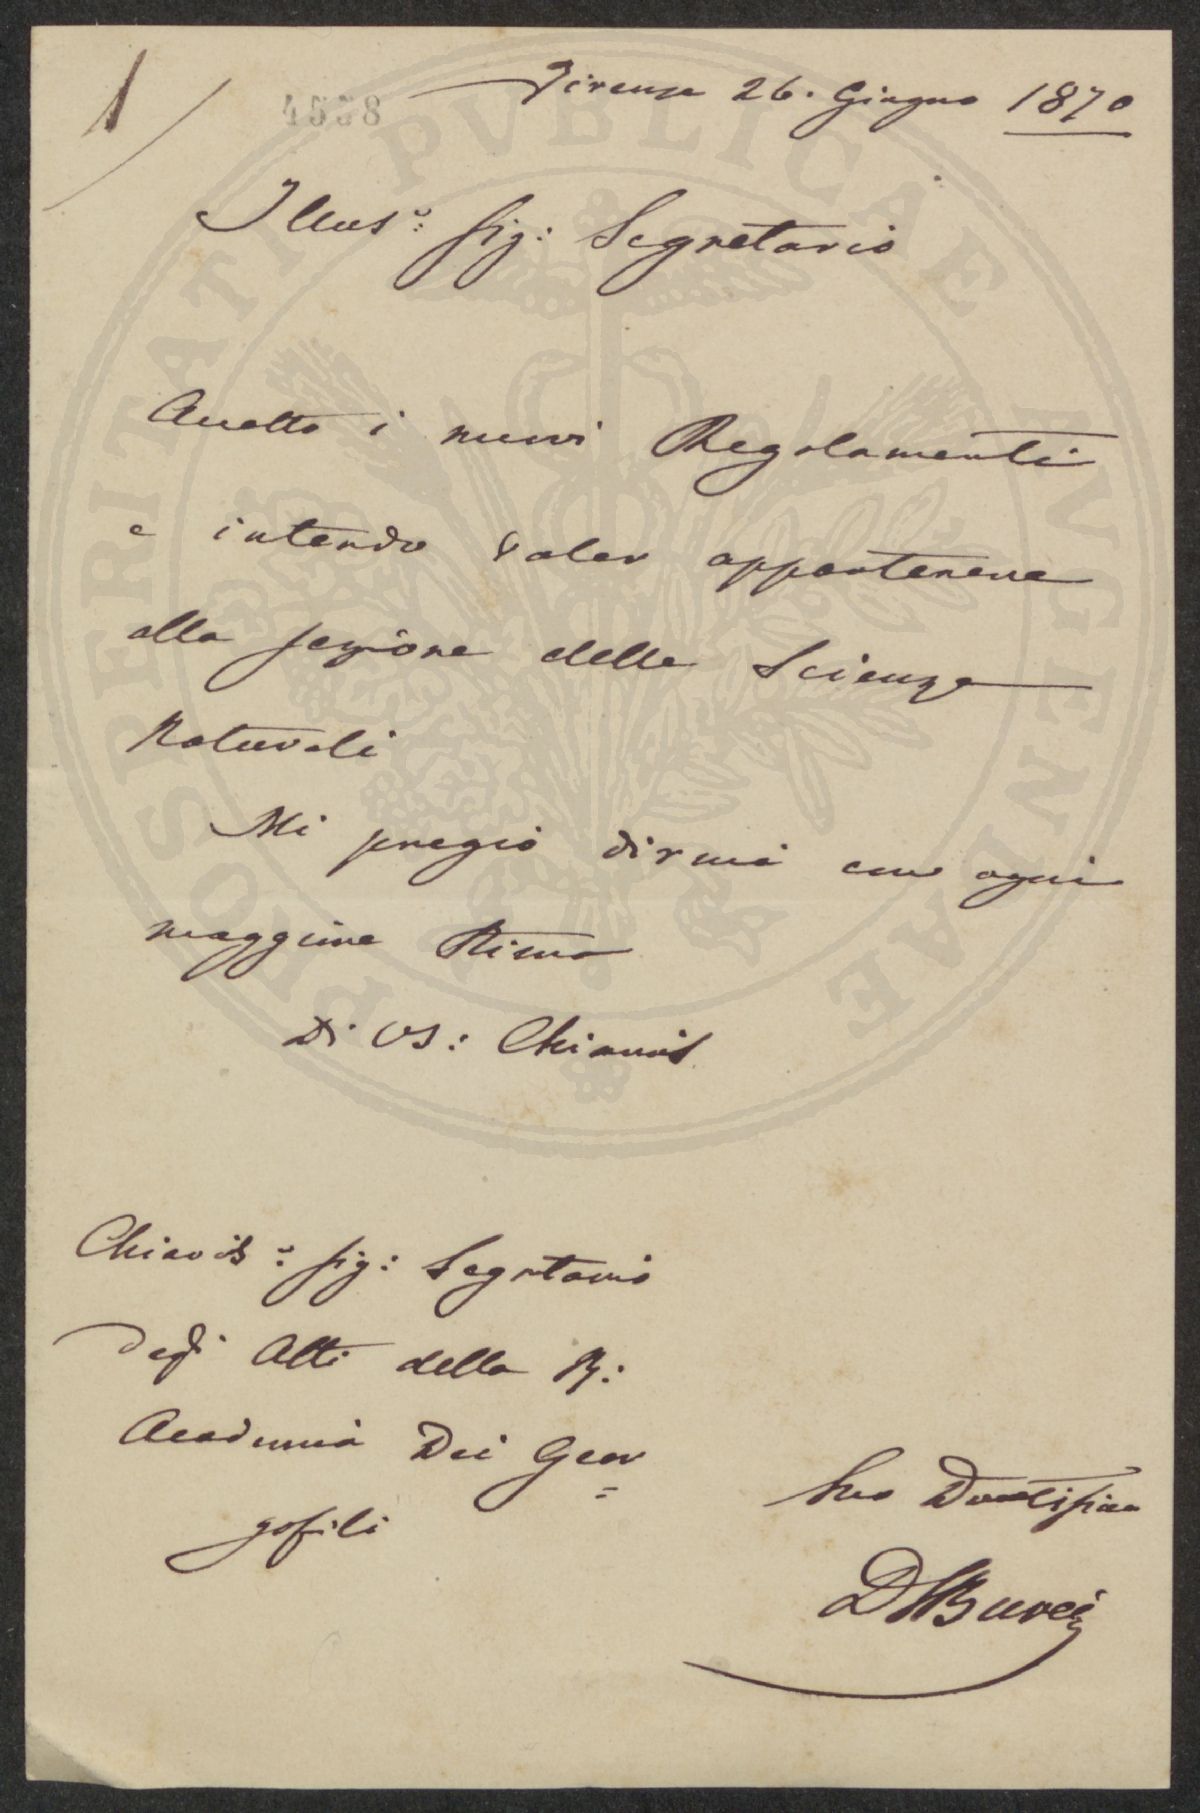 1
4558
Firenze 26. Giugno 1870
Illus:º sig: Segretario
Accetto i nuovi Regolamenti
e intendo valer appartenere
alla sezione delle Scienze
Naturali
Mi pregio dirmi con ogni
maggiore stima
Di VS: Chiariss
Chiaris:º sig: Segretario
degli Atti della R:
Accademia Dei Geor
=
gofili
Suo Devotissimo
D Burci
PROSPERITATI PVBLICAE AVGENDAE